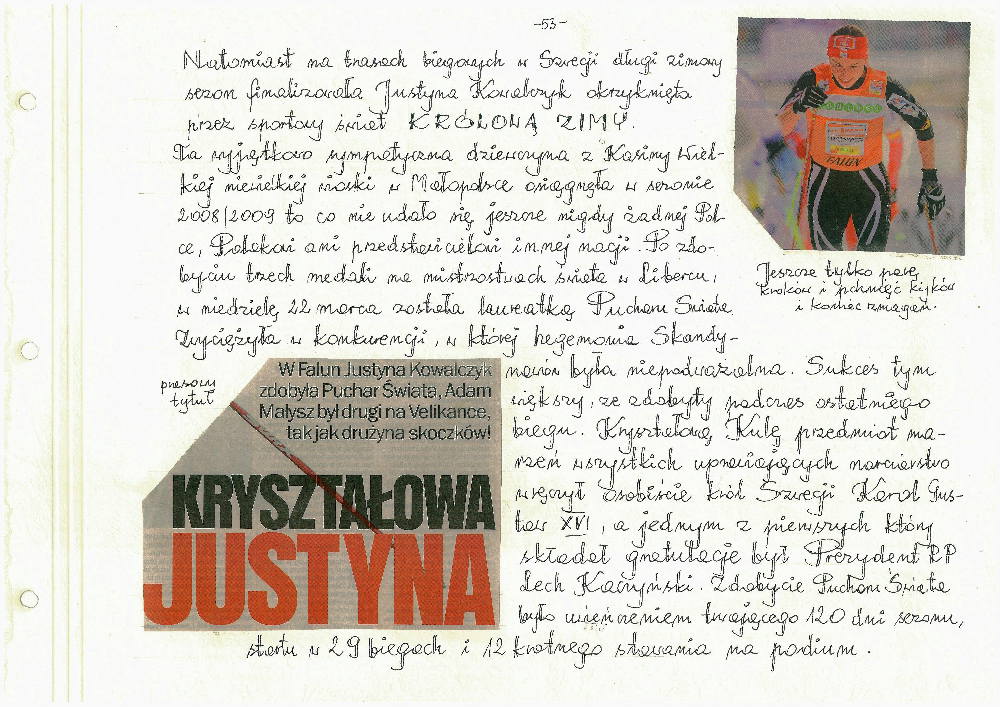 -53-
Natomiast na trasach biegowych w Szwecji długi zimowy
sezon finalizowała Justyna Kowalczyk okrzyknięta
przez sportowy świat KRÓLOWĄ ZIMY.
Ta wyjątkowo sympatyczna dziewczyna z Kasiny Wiel-
kiej niewielkiej wioski w Małopolsce osiągnęła w sezonie
2008/2009 to co nie udało się jeszcze nigdy żadnej Pol-
ce, Polakowi ani przedstawicielowi innej nacji. Po zdo-
byciu trzech medali na mistrzostwach świata w Libercu,
w niedzielę 22 marca została laureatką Pucharu Świata.
Zwyciężyła w konkurencji, w której hegemonia Skandy-
nawów była niepodważalna. Sukces tym
większy, że zdobyty podczas ostatniego
biegu. Kryształową Kulę przedmiot ma-
rzeń wszystkich uprawiających narciarstwo
wręczył osobiście król Szwecji Karol Gus-
taw XVI, a jednym z pierwszych który
składał gratulacje był Prezydent RP
Lech Kaczyński. Zdobycie Pucharu Świata
było uwieńczeniem trwającego 120 dni sezonu,
startu w 29 biegach i 12 krotnego stawania na podium.
FALUN
Jeszcze tylko parę
kroków i pchnięć kijków
i koniec zmagań.
prasowy
tytuł
W Falun Justyna Kowalczyk
zdobyła Puchar Świata, Adam
Małysz był drugi na Velikance,
tak jak drużyna skoczków!
KRYSZTAŁOWA
JUSTYNA